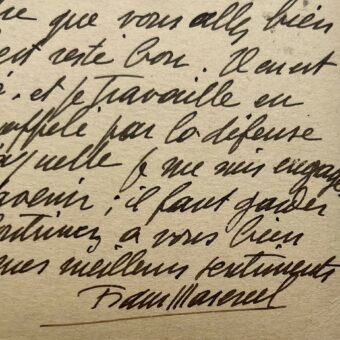 que vous allez bien
est resté bon. Il en est
, et je travaille en
appelé par la défense
laquelle je me suis engagé
avenir ; il faut garder
continuez à vous bien
mes meilleurs sentiments
Frans Masereel